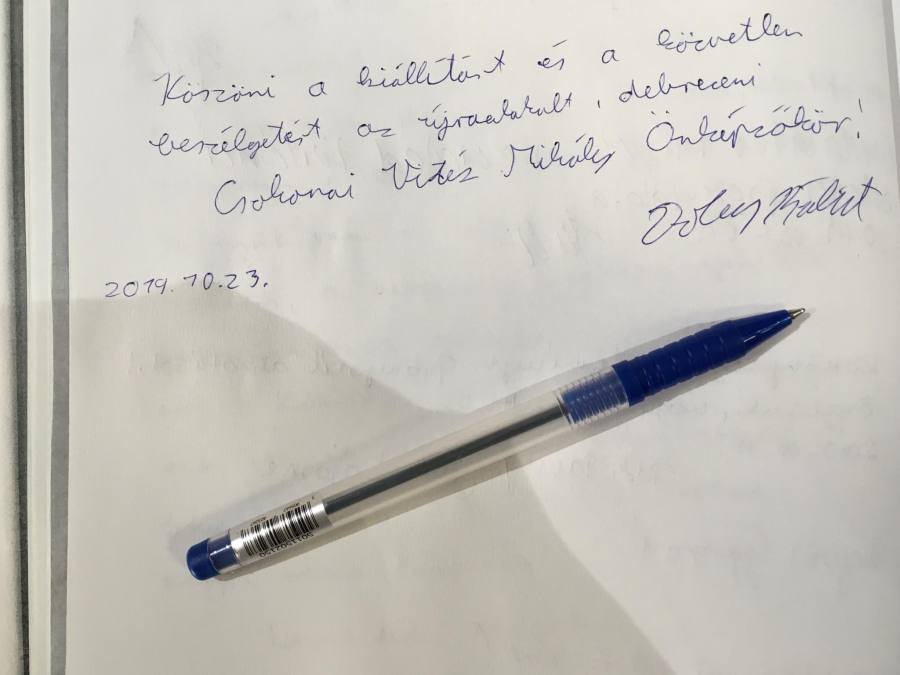 Köszöni a kiállítást és a közvetlen
beszélgetést az újraalakult, debreceni
Csokonai Vitéz Mihály Önképzőkör!
2019.10.23.